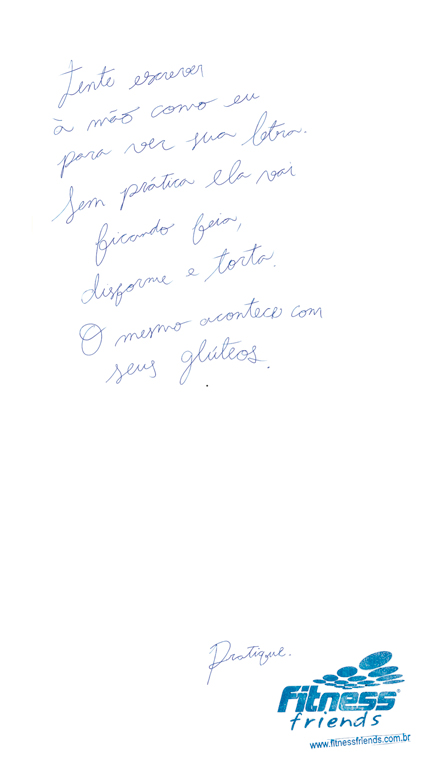 Tente escrever
à mão como eu
para ver sua letra.
Sem prática ela vai
ficando feia,
disforme e torta.
O mesmo acontece com
seus glúteos.
Pratique.
Fitness®
friends
www.fitnessfriends.com.br